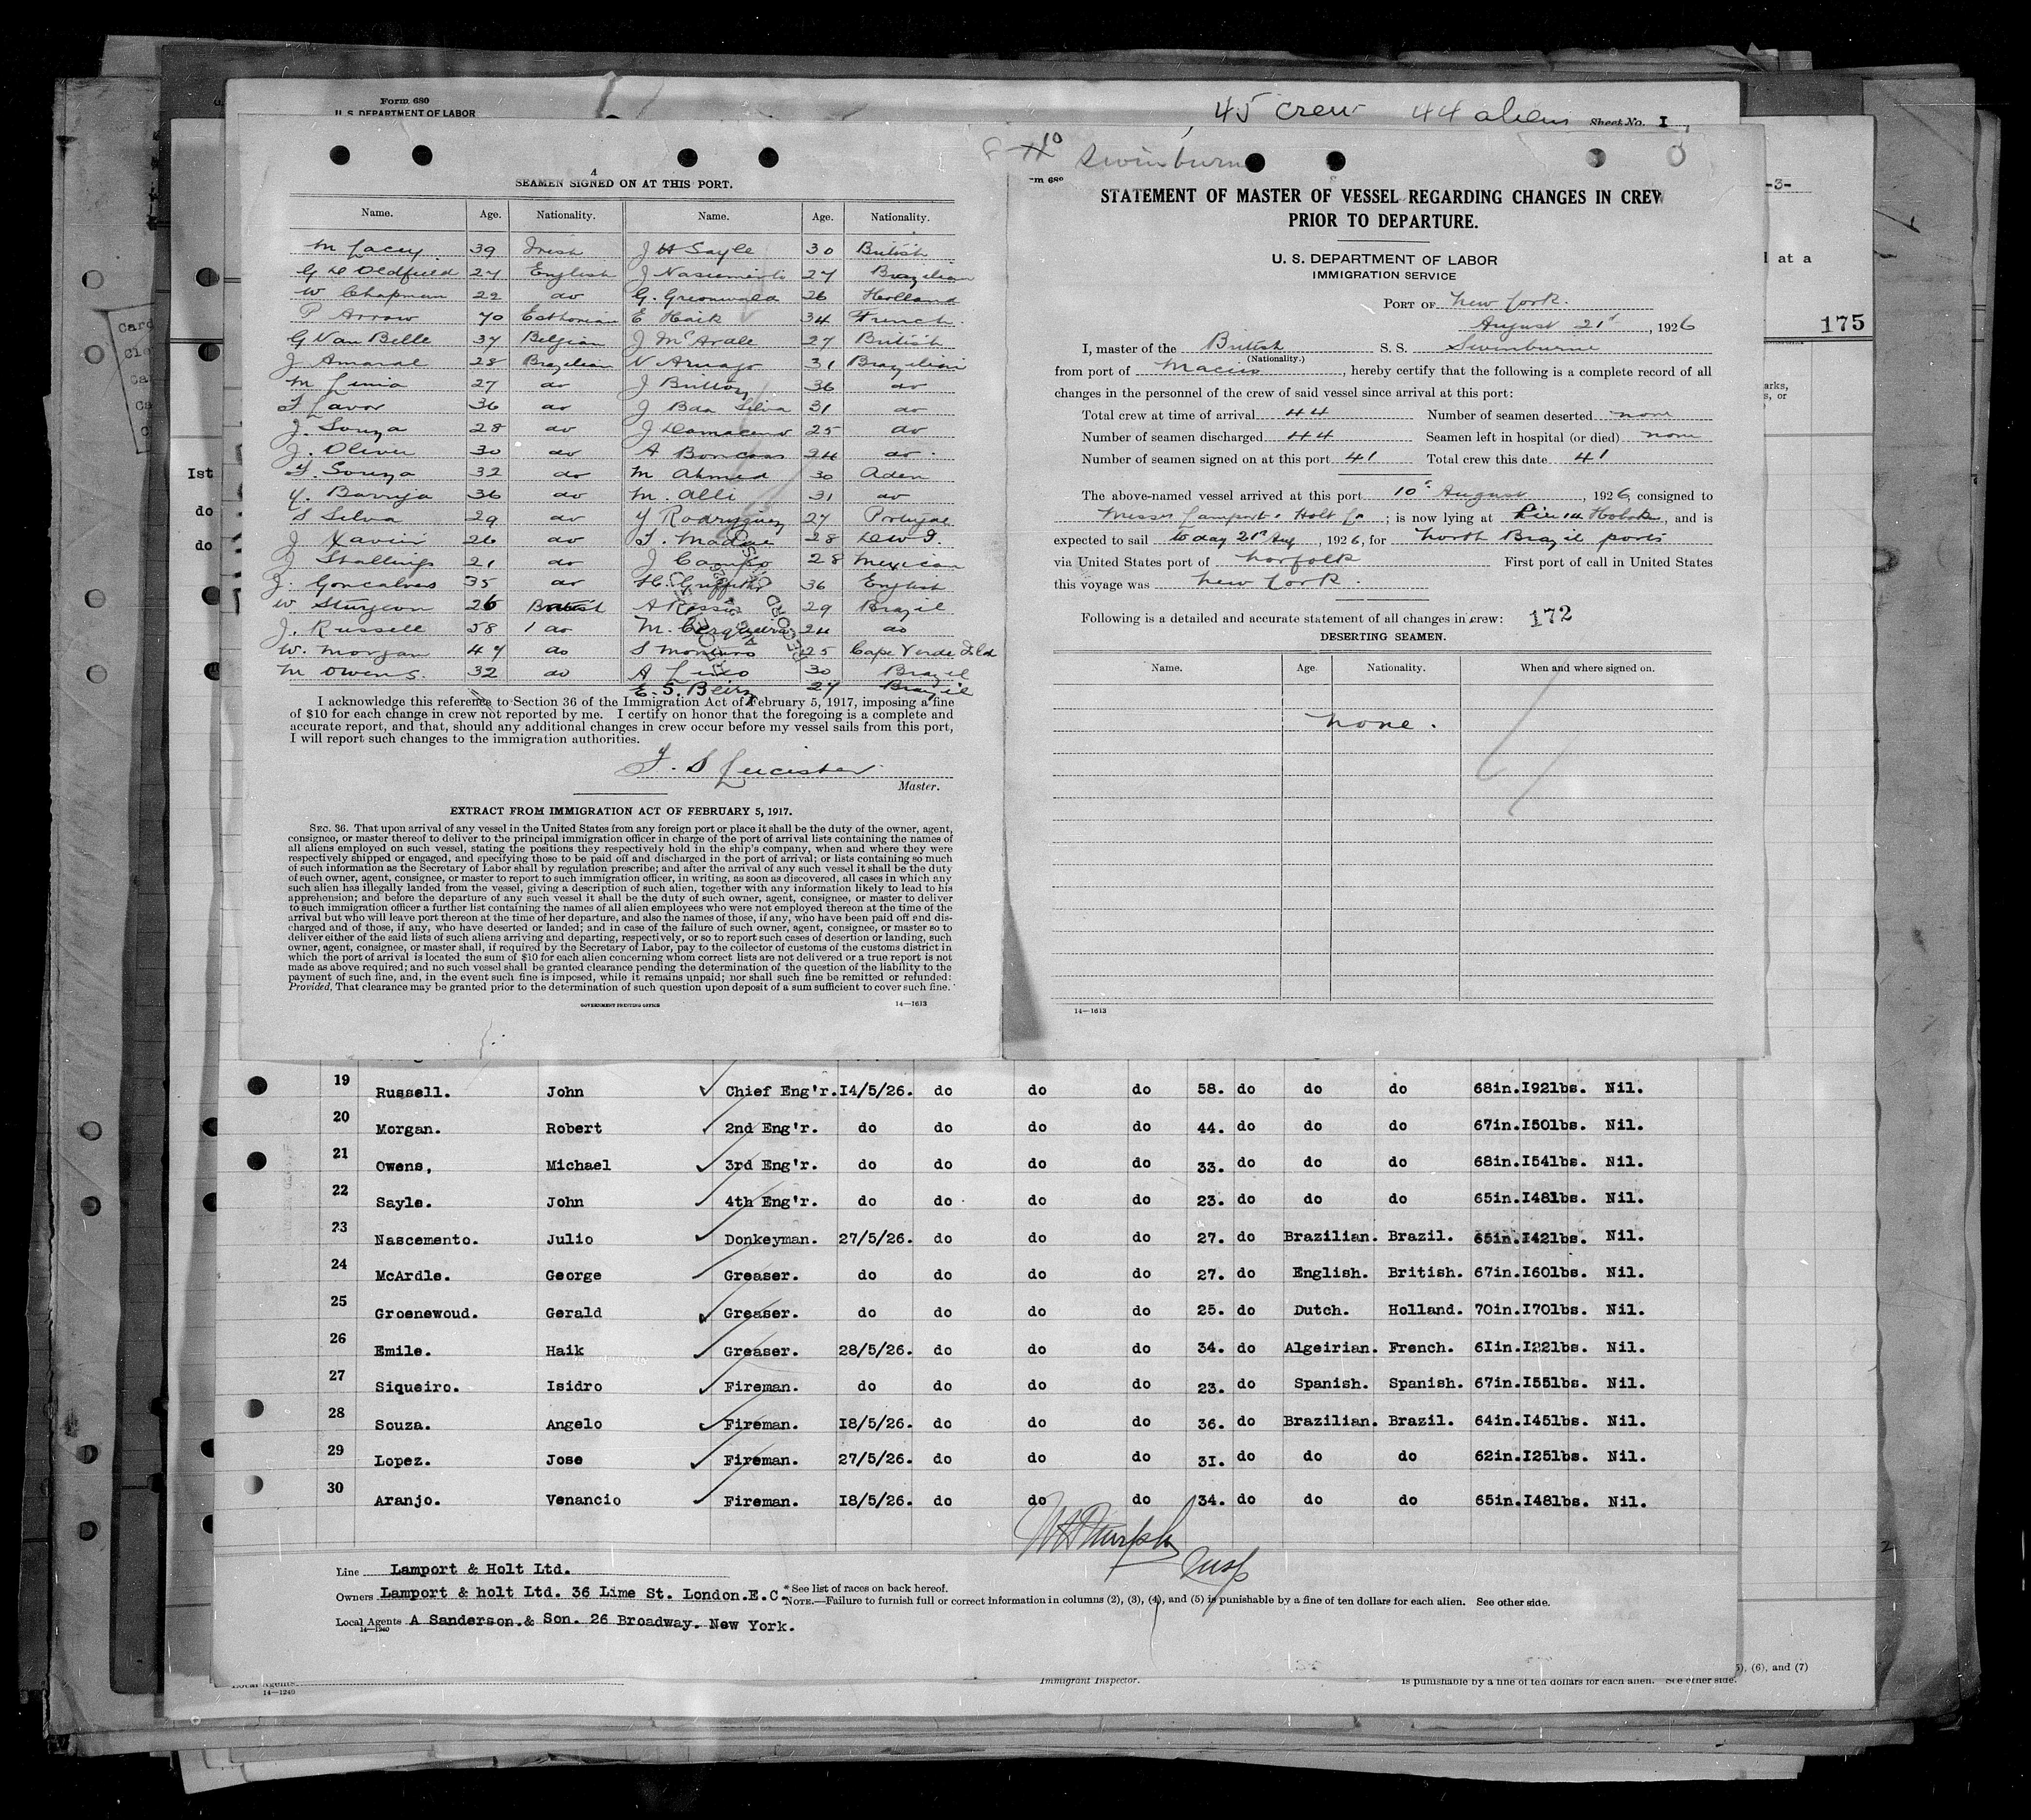 Form 680
U. S. DEPARTMENT OF LABOR
45 crew 44 aliens Sheet No. I
-3-
d at a
175
arks,
s, or
Ist
do
do
4
SEAMEN SIGNED ON AT THIS PORT.
Name. Age. Nationality. Name. Age. Nationality.
M Lacey. 39 Irish J H Sayle 30 British
G D Oldfield 27 English J Nascimento 27 Brazilian
W Chapman 22 do G. Groenwald 26 Holland
P Arrow 40 Esthonian E Haik 34 French.
G Van Belle 37 Belgian J McArdle 27 British
J. Amaral 28 Brazilian V Araujo 31 Brazilian
M Lima 27 do J Britto 36 do
36 do J Baa Silva 31 do
J. Souza 28 do J Damaceno 25 do
J. Oliver 30 do A 24 do.
32 do M Ahmed 30 Aden
36 do M. Alli 31 do
S Silva 29 do Y Rodryguez 27 Portugal
J Xavier 26 do 28
J Stallings 21 do J Campo 28 Mexican
J. Goncalves 35 do H. Griffiths 36 English
W Sturgeon 26 British A Rossi 29 Brazil
J. Russell 58 do M. Cerqueira 24 do
W. Morgan 44 do S Monteiro 25 Cape Verde Ild
M Owens. 32 do A 30 Brazil
E. S. 27 Brazil
I acknowledge this reference to Section 36 of the Immigration Act of February 5, 1917, imposing a fine
of $10 for each change in crew not reported by me. I certify on honor that the foregoing is a complete and
accurate report, and that, should any additional changes in crew occur before my vessel sails from this port,
I will report such changes to the immigration authorities.
S Leicester
Master.
EXTRACT FROM IMMIGRATION ACT OF FEBRUARY 5, 1917.
SEC. 36. That upon arrival of any vessel in the United States from any foreign port or place it shall be the duty of the owner, agent,
consignee, or master thereof to deliver to the principal immigration officer in charge of the port of arrival lists containing the names of
all aliens employed on such vessel, stating the positions they respectively hold in the ship's company, when and where they were
respectively shipped or engaged, and specifying those to be paid off and discharged in the port of arrival; or lists containing so much
of such information as the Secretary of Labor shall by regulation prescribe; and after the arrival of any such vessel it shall be the duty
of such owner, agent, consignee, or master to report to such immigration officer, in writing, as soon as discovered, all cases in which any
such alien has illegally landed from the vessel, giving a description of such alien, together with any information likely to lead to his
apprehension; and before the departure of any such vessel it shall be the duty of such owner, agent, consignee, or master to deliver
to such immigration officer a further list containing the names of all alien employees who were not employed thereon at the time of the
arrival but who will leave port thereon at the time of her departure, and also the names of those, if any, who have been paid off and dis-
charged and of those, if any, who have deserted or landed; and in case of the failure of such owner, agent, consignee, or master so to
deliver either of the said lists of such aliens arriving and departing, respectively, or so to report such cases of desertion or landing, such
owner, agent, consignee, or master shall, if required by the Secretary of Labor, pay to the collector of customs of the customs district in
which the port of arrival is located the sum of $10 for each alien concerning whom correct lists are not delivered or a true report is not
made as above required; and no such vessel shall be granted clearance pending the determination of the question of the liability to the
payment of such fine, and, in the event such fine is imposed, while it remains unpaid; nor shall such fine be remitted or refunded:
Provided, That clearance may be granted prior to the determination of such question upon deposit of a sum sufficient to cover such fine.
GOVERNMENT PRINTING OFFICE 14—1613
10 Swinburne
m 680
STATEMENT OF MASTER OF VESSEL REGARDING CHANGES IN CREW
PRIOR TO DEPARTURE.
U. S. DEPARTMENT OF LABOR
IMMIGRATION SERVICE
PORT OF New York.
August 21st, 1926
I, master of the British S. S. Swinburne
(Nationality.)
from port of Macius, hereby certify that the following is a complete record of all
changes in the personnel of the crew of said vessel since arrival at this port:
Total crew at time of arrival 44 Number of seamen deserted none
Number of seamen discharged 44 Seamen left in hospital (or died) none
Number of seamen signed on at this port 41 Total crew this date 41
The above-named vessel arrived at this port 10th August, 1926, consigned to
Messrs Lamport & Holt Co; is now lying at Pier 14 Hobok, and is
expected to sail today 21st Aug, 1926, for North Brazil ports
via United States port of Norfolk First port of call in United States
this voyage was New York.
Following is a detailed and accurate statement of all changes in crew: 172
DESERTING SEAMEN.
Name. Age. Nationality. When and where signed on.
None.
14—1613
19 Russell. John Chief Eng'r. I4/5/26. do do do 58. do do do 68in. I92lbs. Nil.
20 Morgan. Robert 2nd Eng'r. do do do do 44. do do do 67in. I50lbs. Nil.
21 Owens, Michael 3rd Eng'r. do do do do 33. do do do 68in. I54lbs. Nil.
22 Sayle. John 4th Eng'r. do do do do 23. do do do 65in. I48lbs. Nil.
23 Nascemento. Julio Donkeyman. 27/5/26. do do do 27. do Brazilian. Brazil. 65in. I42lbs. Nil.
24 McArdle. George Greaser. do do do do 27. do English. British. 67in. I60lbs. Nil.
25 Groenewoud. Gerald Greaser. do do do do 25. do Dutch. Holland. 70in. I70lbs. Nil.
26 Emile. Haik Greaser. 28/5/26. do do do 34. do Algeirian. French. 6Iin. I22lbs. Nil.
27 Siqueiro. Isidro Fireman. do do do do 23. do Spanish. Spanish. 67in. I55lbs. Nil.
28 Souza. Angelo Fireman. I8/5/26. do do do 36. do Brazilian. Brazil. 64in. I45lbs. Nil.
29 Lopez. Jose Fireman. 27/5/26. do do do 3I. do do do 62in. I25lbs. Nil.
30 Aranjo. Venancio Fireman. I8/5/26. do do do 34. do do do 65in. I48lbs. Nil.
Murphy
Insp
Line Lamport & Holt Ltd.
Owners Lamport & holt Ltd. 36 Lime St. London.E.C.
Local Agents A Sanderson.& Son. 26 Broadway. New York.
14—1240
* See list of races on back hereof.
NOTE.—Failure to furnish full or correct information in columns (2), (3), (4), and (5) is punishable by a fine of ten dollars for each alien. See other side.
5), (6), and (7)
Local Agents
14—1240
Immigrant Inspector.
is punishable by a fine of ten dollars for each alien. See other side.